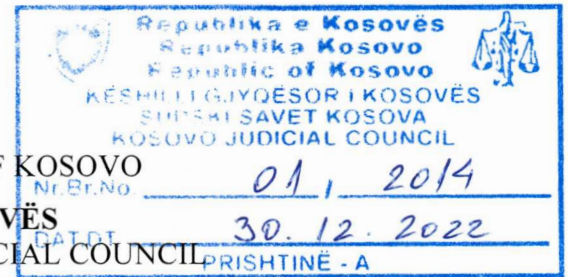 Republika e Kosovës
Republika Kosovo
Republic of Kosovo
KËSHILLI GJYQËSOR I KOSOVËS
SUDSKI SAVET KOSOVA
KOSOVO JUDICIAL COUNCIL
F KOSOVO
Nr.Br.No. 01, 2014
VËS
DAT.DT. 30.12.2022
CIAL COUNCIL
PRISHTINË - A